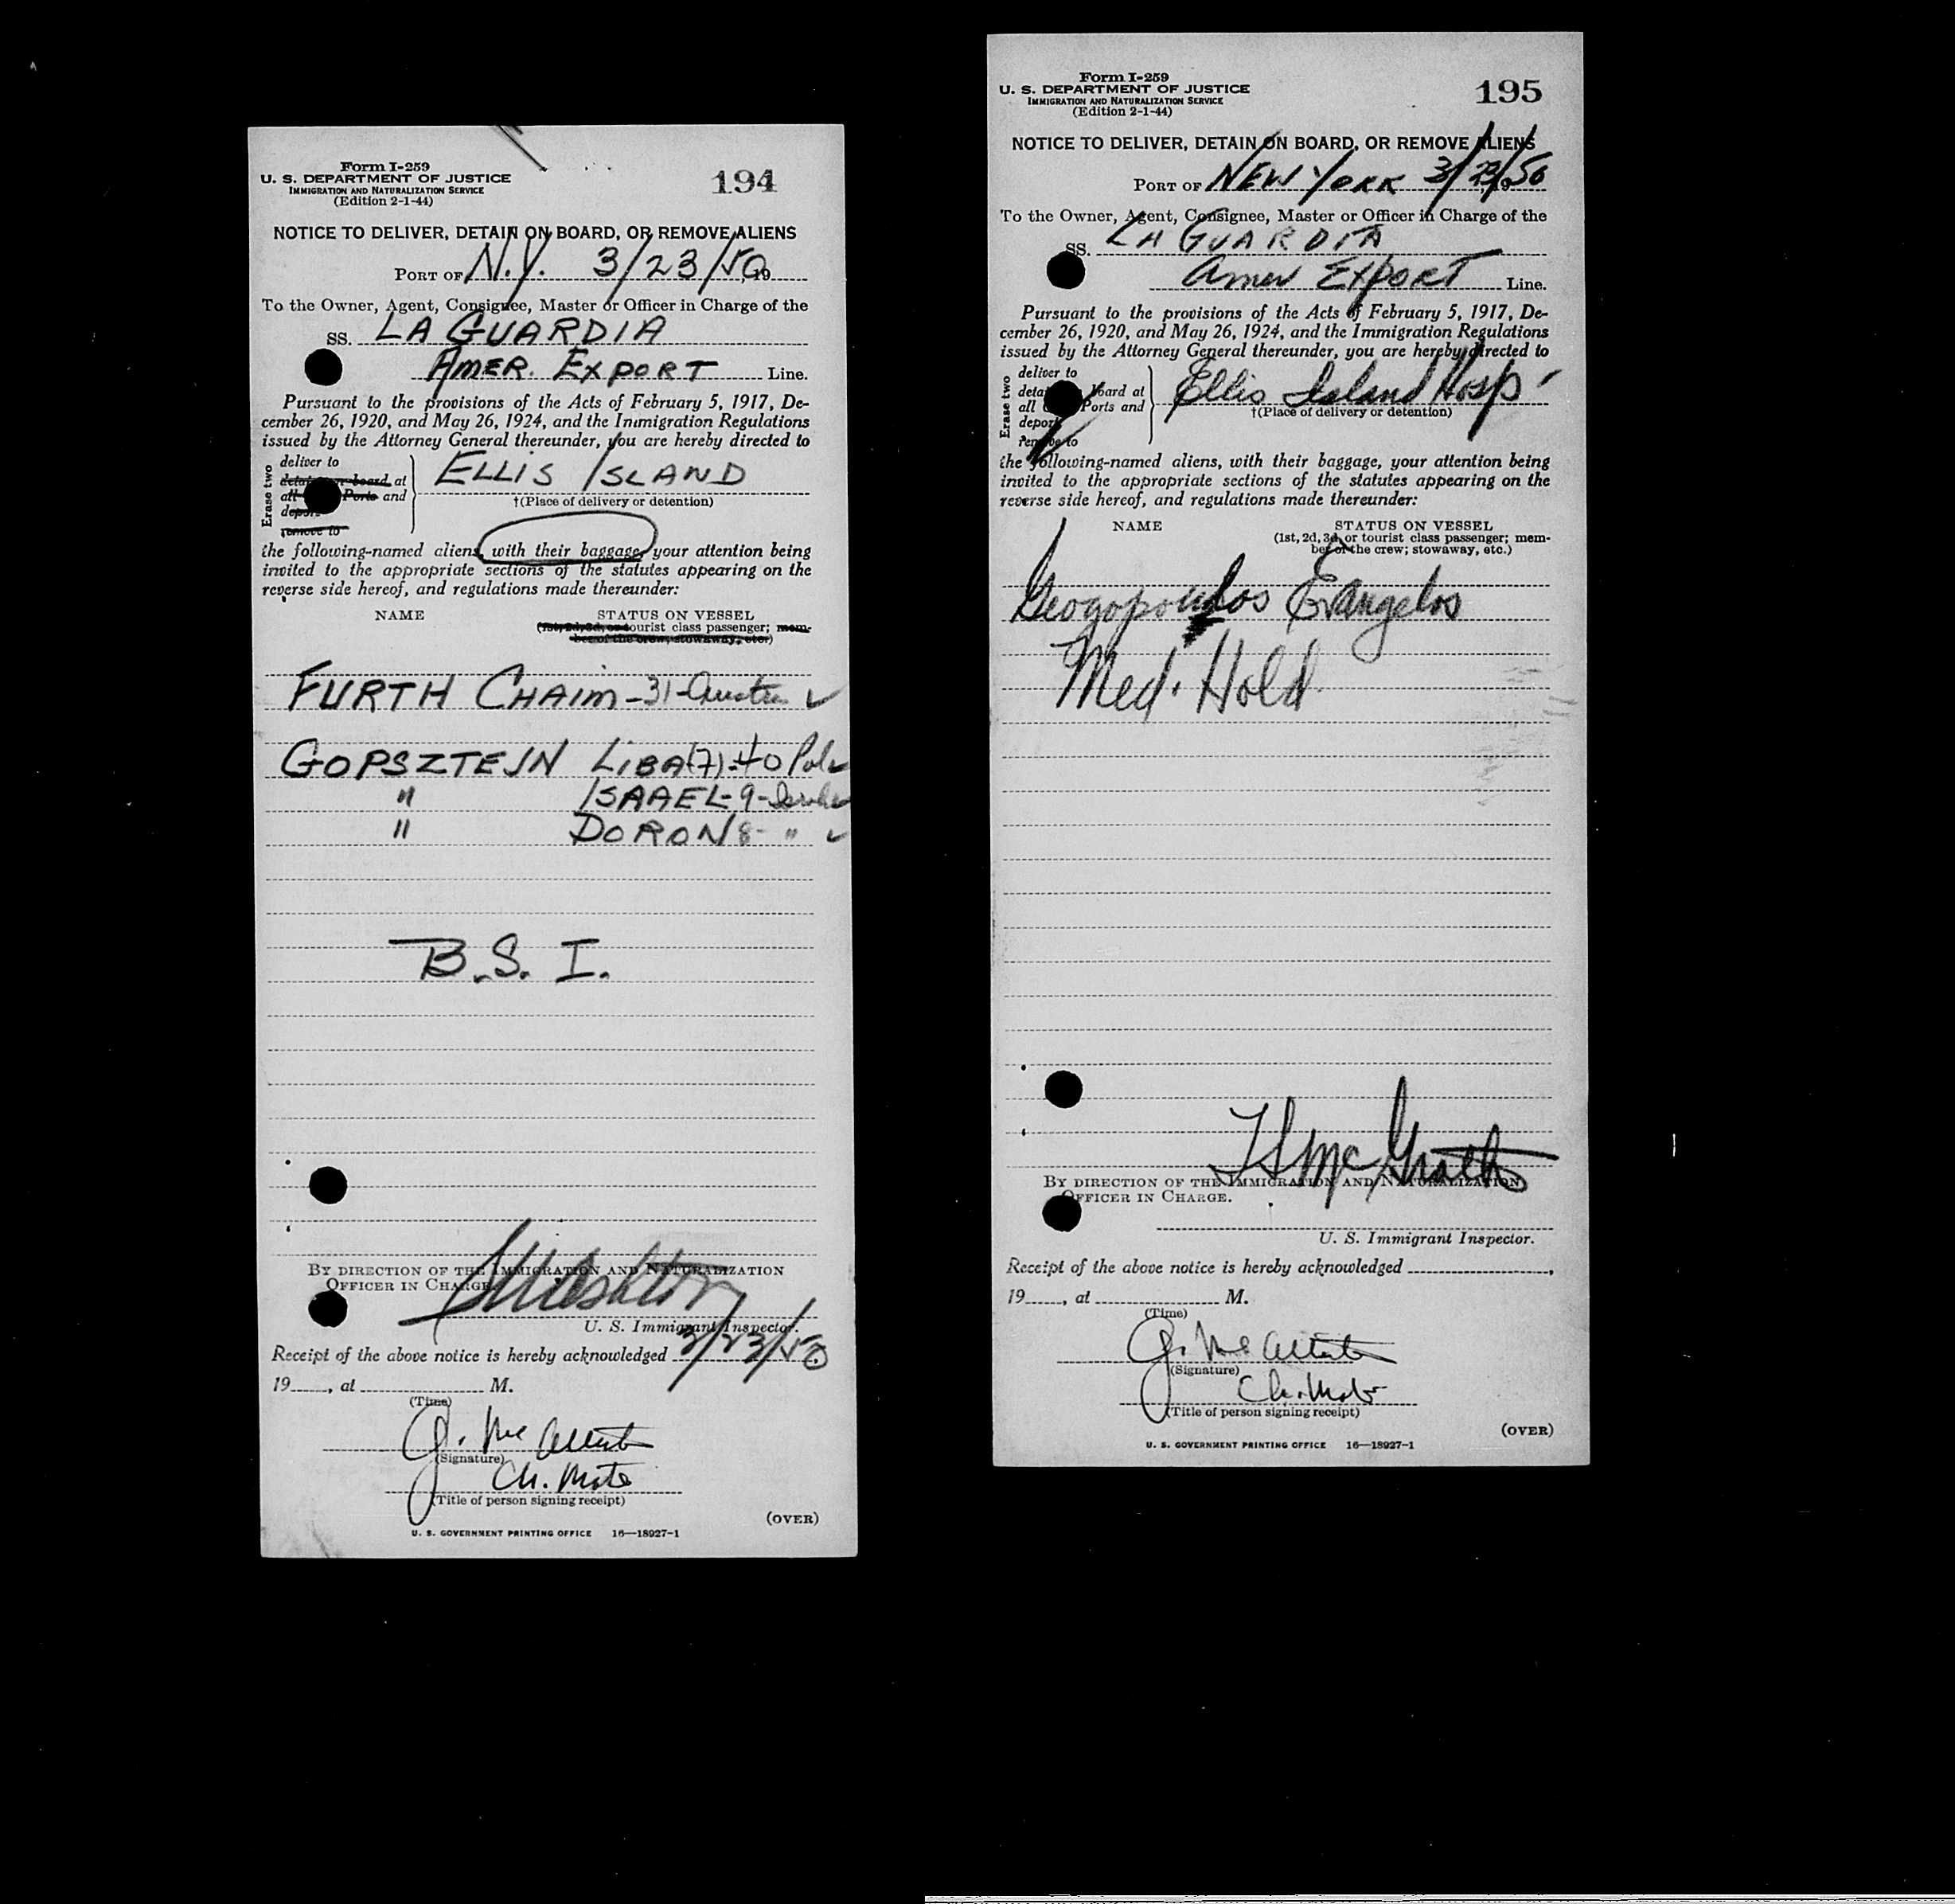 Form I-259
U. S. DEPARTMENT OF JUSTICE
IMMIGRATION AND NATURALIZATION SERVICE
(Edition 2-1-44)
194
NOTICE TO DELIVER, DETAIN ON BOARD, OR REMOVE ALIENS
PORT OF N.Y. 3/23/50, 19
To the Owner, Agent, Consignee, Master or Officer in Charge of the
SS. LA GUARDIA
AMER. EXPORT Line.
Pursuant to the provisions of the Acts of February 5, 1917, De-
cember 26, 1920, and May 26, 1924, and the Immigration Regulations
issued by the Attorney General thereunder, you are hereby directed to
Erase two
deliver to
detain on board at
all Ports and
deport
remove to
ELLIS ISLAND
†(Place of delivery or detention)
the following-named aliens, with their baggage, your attention being
invited to the appropriate sections of the statutes appearing on the
reverse side hereof, and regulations made thereunder:
NAME STATUS ON VESSEL
(1st, 2d, 3d, or tourist class passenger; mem-
ber of the crew; stowaway, etc.)
FURTH CHAIM - 31 - ✓
GOPSZTEJN LIBA (7) - 40 Pol ✓
" ISAAEL - 9 - ✓
" DORON 8 - " ✓
B.S.I.
BY DIRECTION OF THE IMMIGRATION AND NATURALIZATION
OFFICER IN CHARGE.
U. S. Immigrant Inspector.
Receipt of the above notice is hereby acknowledged 3/23/50
19____, at ________ M.
(Time)
(Signature)
Ch. Mate
(Title of person signing receipt)
(OVER)
U. S. GOVERNMENT PRINTING OFFICE 16—18927-1
Form I-259
U. S. DEPARTMENT OF JUSTICE
IMMIGRATION AND NATURALIZATION SERVICE
(Edition 2-1-44)
195
NOTICE TO DELIVER, DETAIN ON BOARD, OR REMOVE ALIENS
PORT OF NEW YORK 3/23/50
To the Owner, Agent, Consignee, Master or Officer in Charge of the
SS. LA GUARDIA
Amer EXPORT Line.
Pursuant to the provisions of the Acts of February 5, 1917, De-
cember 26, 1920, and May 26, 1924, and the Immigration Regulations
issued by the Attorney General thereunder, you are hereby directed to
Erase two
deliver to
board at
all Ports and
deport
remove to
Ellis Island Hosp
†(Place of delivery or detention)
the following-named aliens, with their baggage, your attention being
invited to the appropriate sections of the statutes appearing on the
reverse side hereof, and regulations made thereunder:
NAME STATUS ON VESSEL
(1st, 2d, 3d, or tourist class passenger; mem-
ber of the crew; stowaway, etc.)
Geogopoulos Evangelos
Med. Hold
McGrath
BY DIRECTION OF THE IMMIGRATION AND NATURALIZATION
OFFICER IN CHARGE.
U. S. Immigrant Inspector.
Receipt of the above notice is hereby acknowledged ________,
19____, at ________ M.
(Time)
(Signature)
Ch. Mate
(Title of person signing receipt)
(OVER)
U. S. GOVERNMENT PRINTING OFFICE 16—18927-1